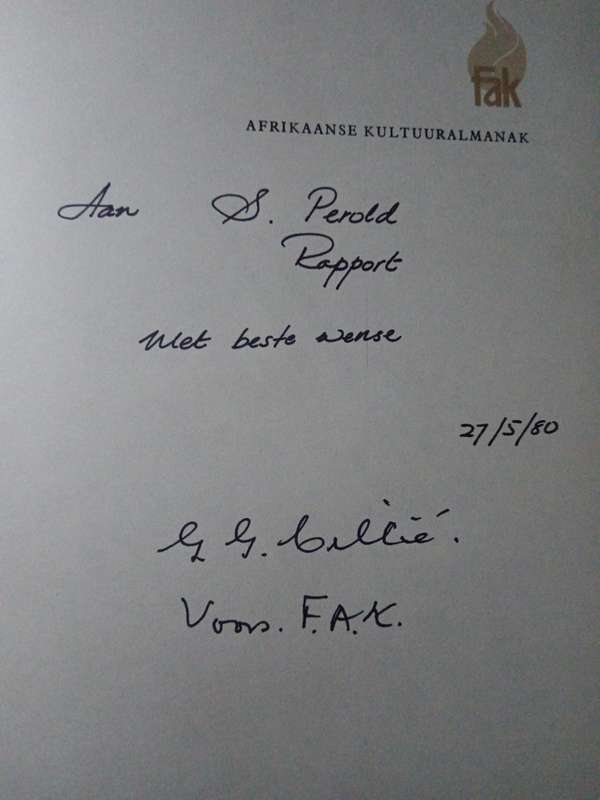 Fak
AFRIKAANSE KULTUURALMANAK
Aan S. Perold
Rapport
Met beste wense
27/5/80
G G. Cillié.
Voors. F.A.K.